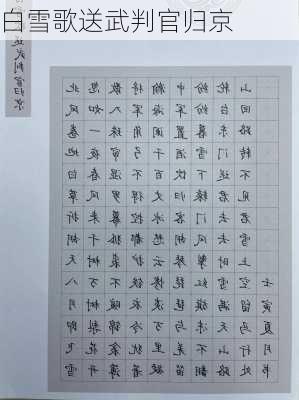 白雪歌送武判官归京
送武判官归京
北风卷地白草折胡天八月即飞雪
忽如一夜春风来千树万树梨花开
散入珠帘湿罗幕狐裘不暖锦衾薄
将军角弓不得控都护铁衣冷难着
瀚海阑干百丈冰愁云惨淡万里凝
中军置酒饮归客胡琴琵琶与羌笛
纷纷暮雪下辕门风掣红旗冻不翻
轮台东门送君去去时雪满天山路
山回路转不见君雪上空留马行处
壬寅夏月书